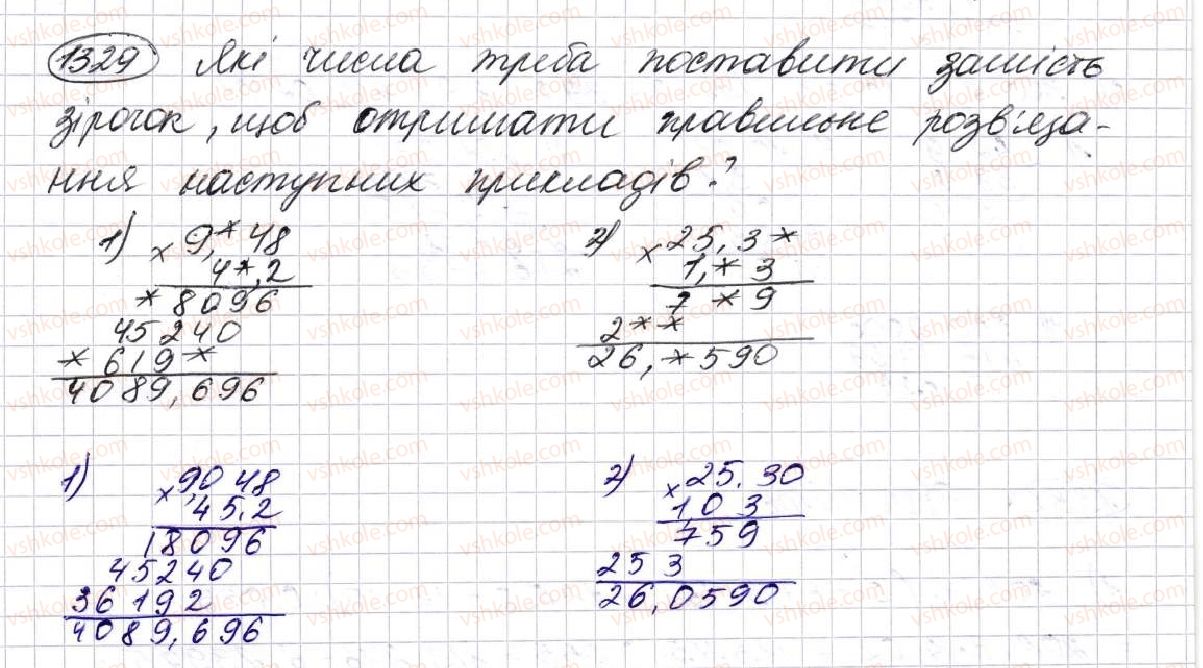 1329 Які числа треба поставити замість
зірочок, щоб отримати правильне розв'яза-
ння наступних прикладів?
1) × 9,*48
4*,2
*8096
45240
*619*
4089,696
2) × 25,3*
1,*3
7*9
2**
26,*590
1) × 9048
,45.2
18096
45240
36192
4089,696
2) × 25.30
1,03
759
253
26,0590